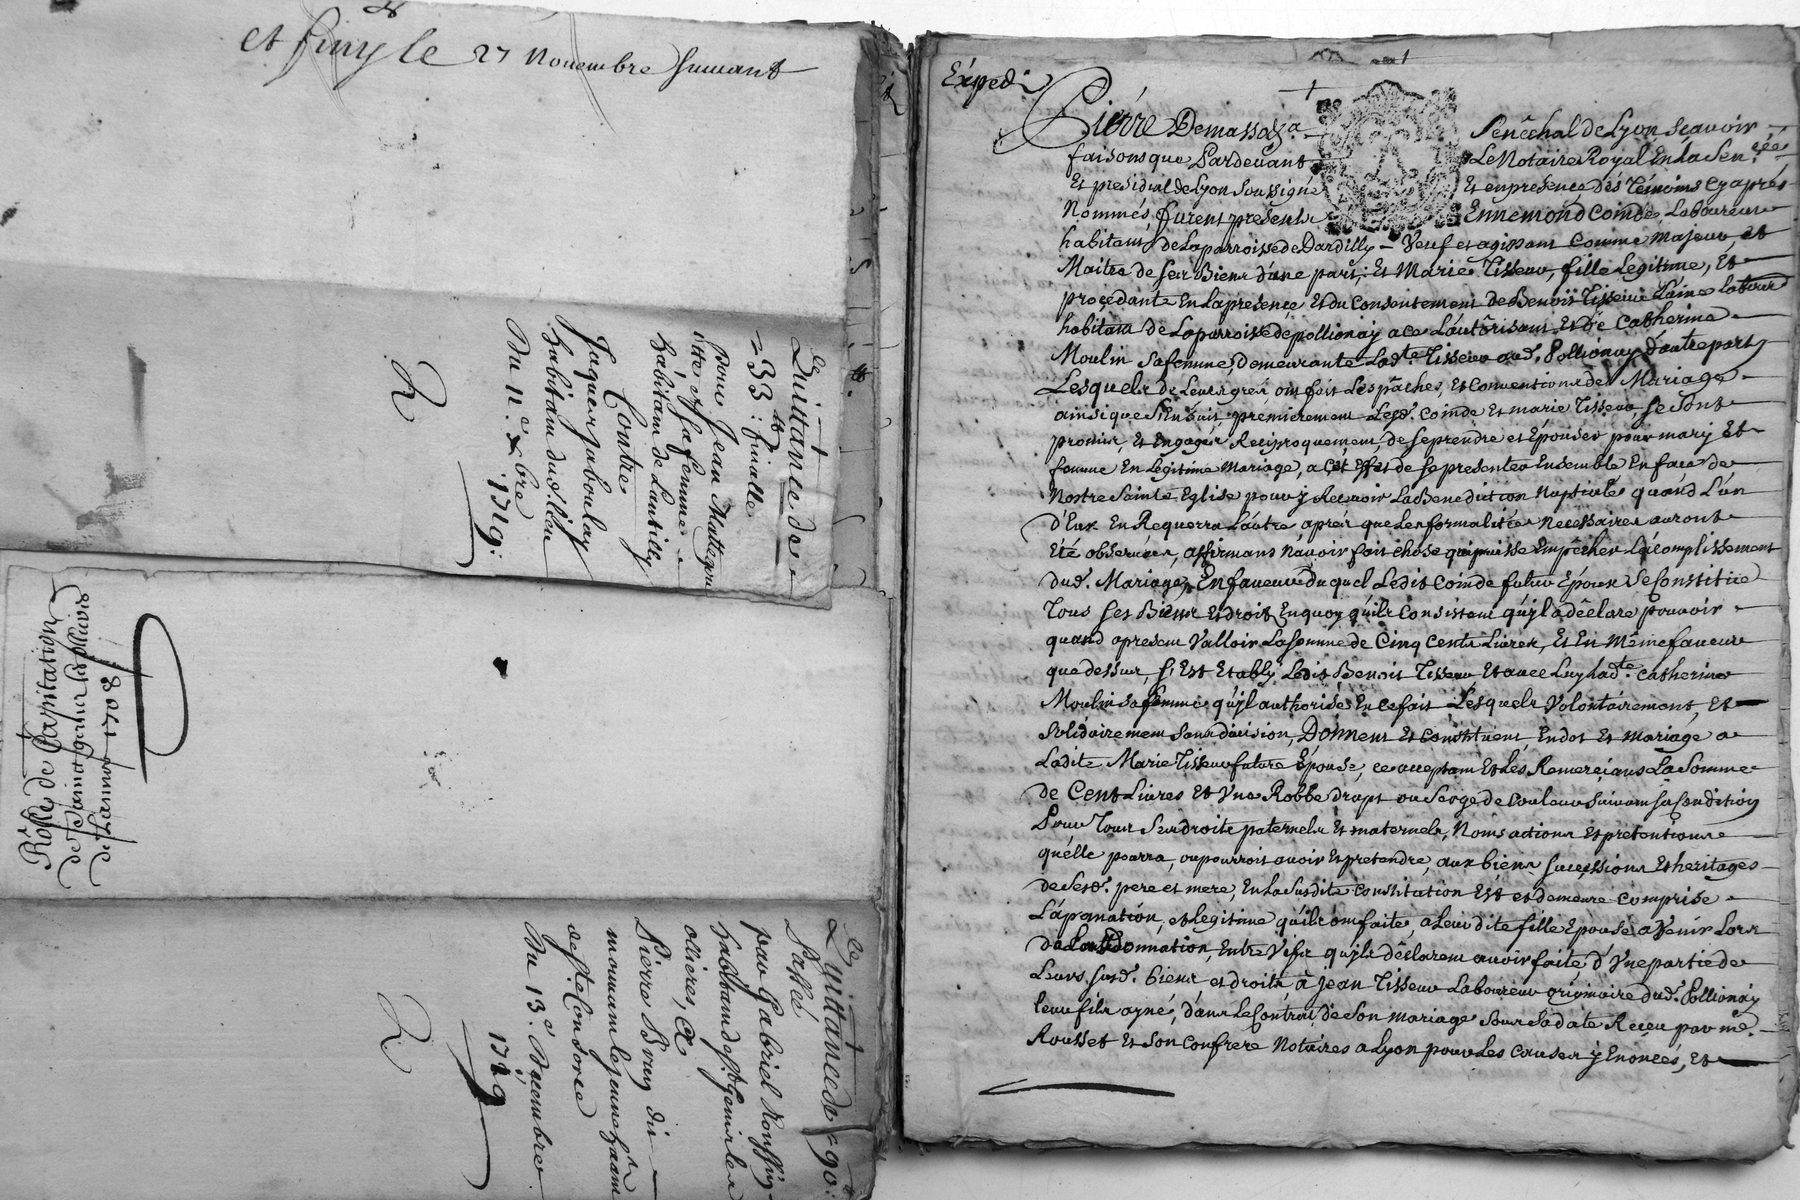 et finy le 27 Novembre suivant
Quittance de
33 tt: foinalle
pour Jean
et sa femme
habitans de Lantilly
Contre
Jaques Jaboulay
habitans dud. lieu
Du 11e xbre
1719:
R
Rolle de Capitation
de Saint genis les olliers
de L'année 1708
Quittance de 90:
Passé
par Gabriel
habitand de st genis les
ollieres, &
Pierre Brun dit
mournand le jeune habitant
de ste Consorce
Du 13e. Novembre
1729
R
Expedié
Pierre Demassa Senêchal de Lyon scavoir
faisons que Pardevant Le Notaire Royal En la Senéee
Et presidial de Lyon Soussigné Et en presence des Témoins cy aprés
Nommés, furent presents Ennemond Coinde, Laboureur
habitant de La parroisse de Dardilly Veuf et agissant comme Majeur, et
Maitre de ses Biens d'une part; Et Marie Tisseur, fille Legitime, Et
procedante En La presence Et du Consentement de Benoit Tisseur L'ainé Laboureur
habitant de La parroisse de pollionay a ce L'autôrisant Et de Catherine
Moulin sa femme, demeurante Lad.te Tisseur aud. Pollionay d'autre part
Lesquels de Leurs gréz ont fait Les pâches, Et Conventions de Mariage
ainsi que S'En suit, premierement Lesd. Coinde Et marie Tisseur, se sont
promis, Et Engagés Reciproquement, de se prendre et Epouser pour mary Et
femme En Legitime Mariage, a Cét effet de se presenter Ensemble En face de
Nostre Sainte Eglise pour y Recevoir La Benediction Nuptiale quand L'un
d'Eux En Requerra L'autre aprés que Les formalités Necessaires auront
Eté observées, affirmans N'avoir fait chose qui puisse Empêcher L'acomplissement
dud. Mariage, En faveur du quel Ledit Coinde futur Epoux Se Constitüe
Tous ses Biens Et droits En quoy qu'ils Consistent qu'il a dêclaré pouvoir
quand a present Valloir La somme de Cinq Cents Livres, Et En Même faveur
que dessus, s'Est Etably Ledit Benoit Tisseur Et avec Luy lad.te Catherine
Moulin sa femme qu'il authorise En ce fait Lesquels Volontairement, Et
Solidairement sans division, Donnent Et Constituent En dot Et mariage a
Ladite Marie Tisseur future Epouse, ce acceptant Et Les Remerciant La Somme
de Cent Livres Et Une Robbe drapt ou Serge de Couleur Suivant sa Condition
Pour Tous Ses droits paternels Et maternels, Noms actions Et pretentions
qu'elle pourra, ou pourroit avoir Et pretendre, aux biens successions Et heritages
de Sesd. pere et mere, En La Susdite Constitution Est et demeure Comprise
L'apanation, et Legitime qu'ils ont faite a Leurdite fille Epouse a Venir Lors
de La Donnation, Entre Vifs qu'ils dêclarent avoir faite d'Une partie de
Leurs susd. biens, et droits à Jean Tisseur Laboureur originaire dud. Pollionay
leur fils ayné, dans Le Contrat de Son Mariage sous sa date Receu par me.
Rousset Et Son Confrere Notaires a Lyon pour Les causes y Enoncées, Et